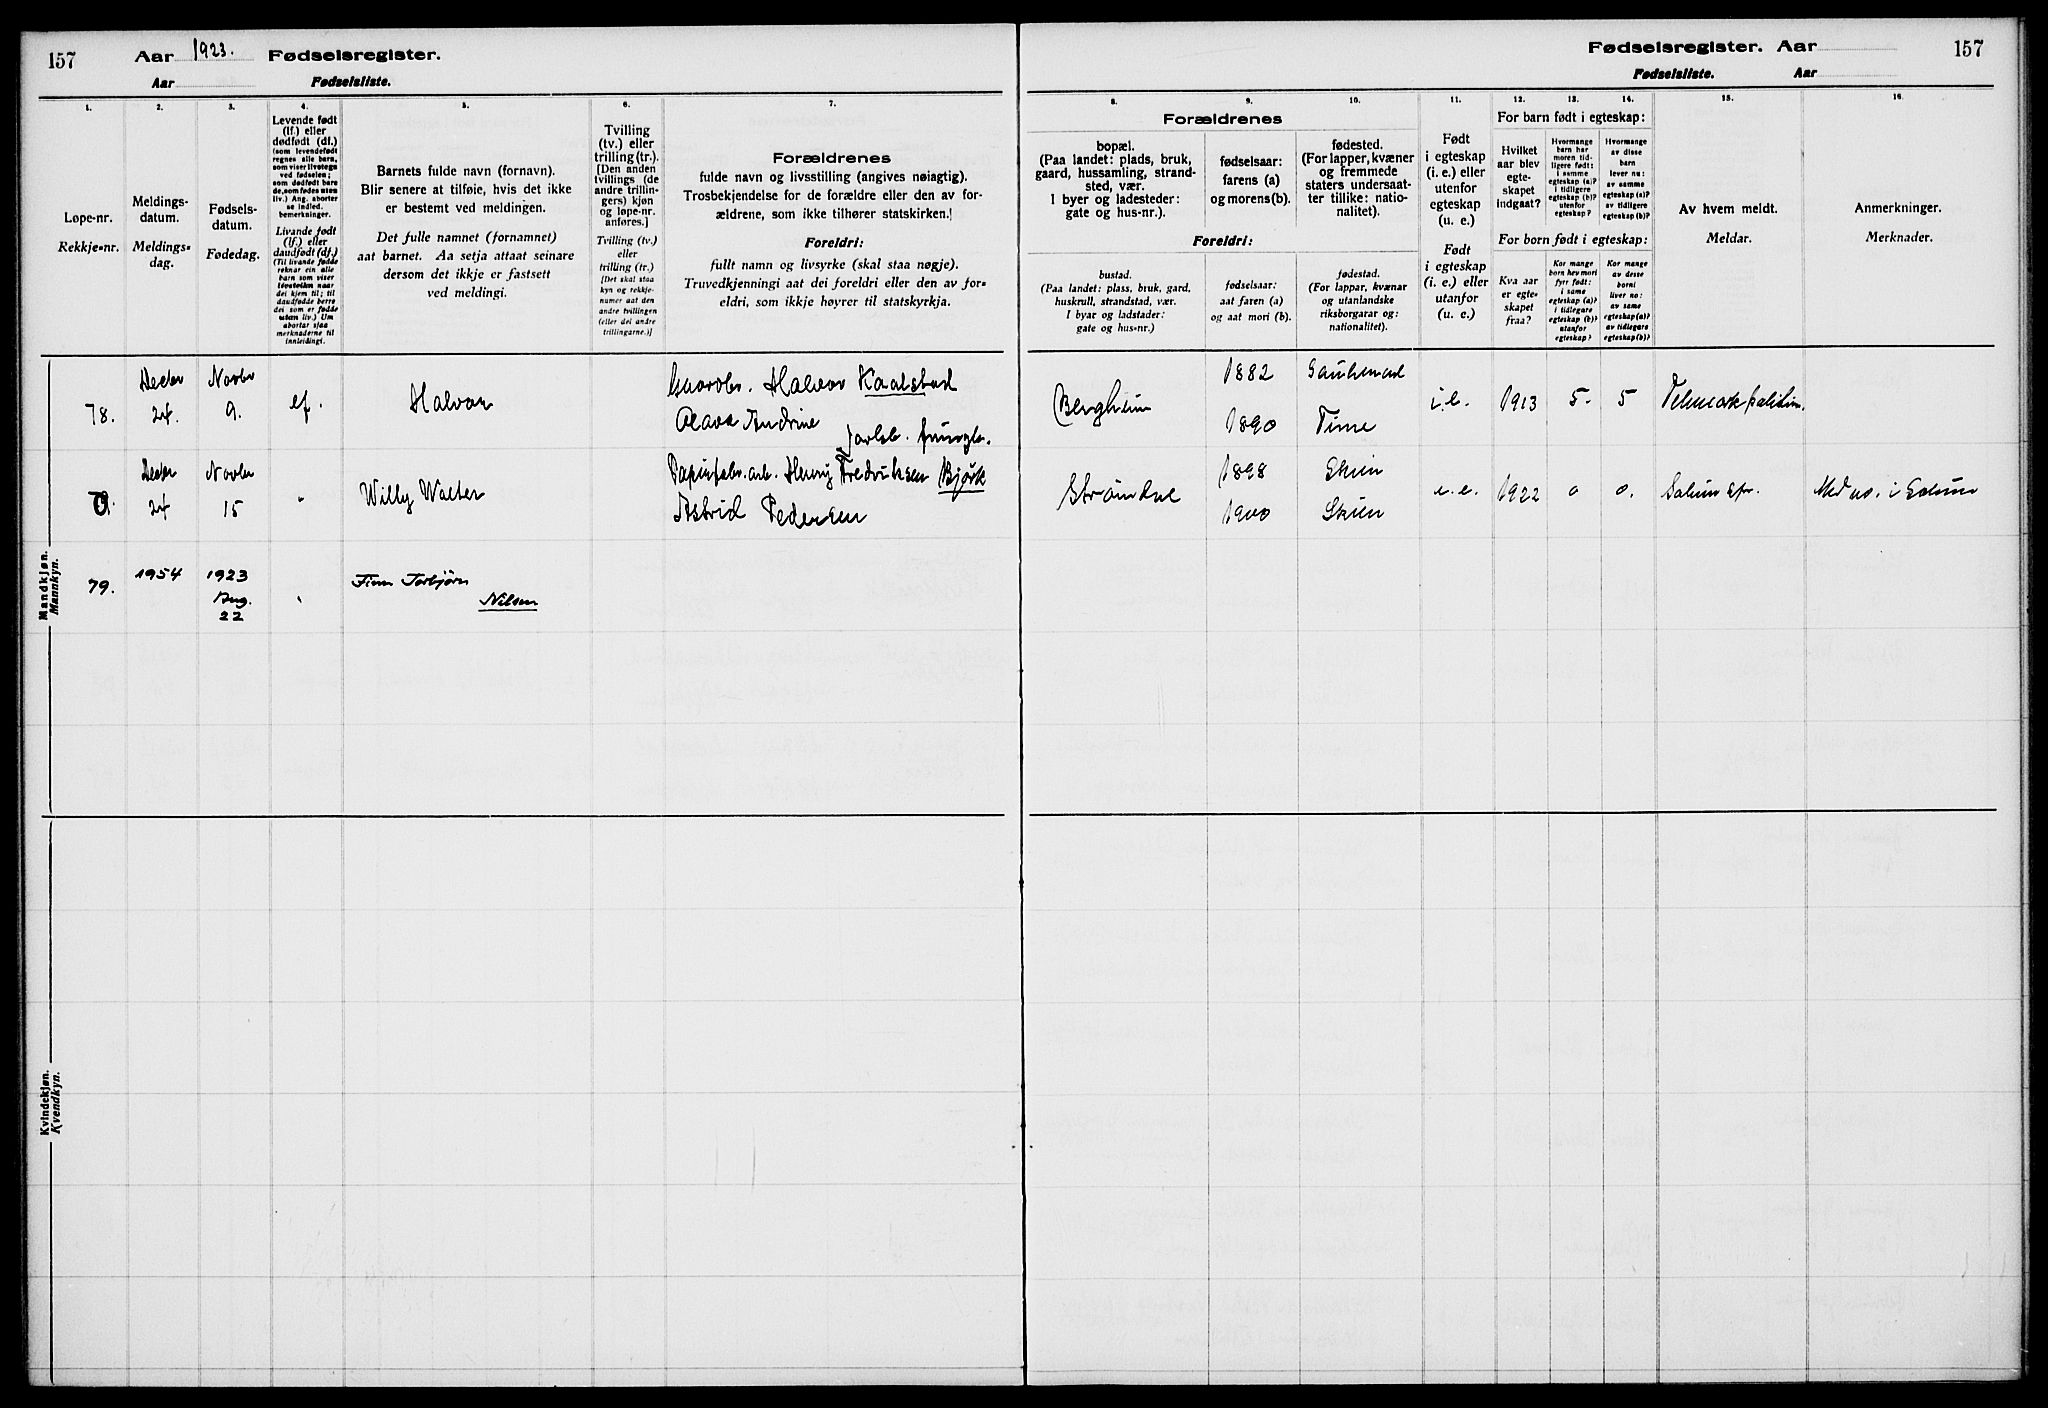 157 Aar 1923. Fødselsregister.
Aar Fødselsliste.
Fødselsregister. Aar 157
Fødselsliste. Aar
1. 2. 3. 4. 5. 6. 7.
Løpe-nr.
Rekkje-nr.
Meldings-
datum.
Meldings-
dag.
Fødsels-
datum.
Fødedag.
Levende født
(lf.) eller
dødfødt (df.)
(som levendefødt
regnes alle barn,
som viser livstegn
ved fødselen;
som dødfødt bare
de, som fødes uten
liv.) Ang. aborter
se indled.
bemerkninger.
Livande født
(lf.) eller
daudfødt (df.)
(Til livande fødde
reknar ein alle
barn som viser
livsteikn naar
dei kjem til; til
daudfødde berre
dei som er fødde
utan liv.) Um
abortar sjaa
merknaderne til
innleidingi.
Barnets fulde navn (fornavn).
Blir senere at tilføie, hvis det ikke
er bestemt ved meldingen.
Det fulle namnet (fornamnet)
aat barnet. Aa setja attaat seinare
dersom det ikkje er fastsett
ved meldingi.
Tvilling
(tv.) eller
trilling (tr.).
[Den anden
tvillings (de
andre trillin-
gers) kjøn
og løpe-nr.
anføres.]
Tvilling (tv.)
eller
trilling (tr.)
[Det skal staa
kyn og rekkje-
numer aat den
andre tvillingen
(eller dei andre
trillingarne.)]
Forældrenes
fulde navn og livsstilling (angives nøiagtig).
Trosbekjendelse for de forældre eller den av for-
ældrene, som ikke tilhører statskirken.
Foreldri:
fullt namn og livsyrke (skal staa nøgje).
Truvedkjenningi aat dei foreldri eller den av for-
eldri, som ikkje høyrer til statskyrkja.
8. 9. 10. 11. 12. 13. 14. 15. 16.
Forældrenes
bopæl.
(Paa landet: plads, bruk,
gaard, hussamling, strand-
sted, vær.
I byer og ladesteder:
gate og hus-nr.).
fødselsaar:
farens (a)
og morens (b).
fødested.
(For lapper, kvæner
og fremmede
staters undersaat-
ter tillike: natio-
nalitet).
Foreldri:
bustad.
(Paa landet: plass, bruk, gard,
huskrull, strandstad, vær.
I byar og ladstader:
gate og hus-nr.)
fødselsaar:
aat faren (a)
og aat mori (b).
fødestad.
(For lappar, kvænar
og utanlandske
riksborgarar og:
nationalitet).
Født
i egteskap
(i. e.) eller
utenfor
egteskap
(u. e.)
Født
i egteskap
(i. e.) eller
utanfor
(u. e.)
For barn født i egteskap:
Hvilket
aar blev
egte-
skapet
indgaat?
Hvormange
barn har
moren tid-
ligere født:
i samme
egteskap (a)?
i tidligere
egteskap (b)?
utenfor
egteskap?
Hvormange
av disse
barn
lever nu:
av samme
egteskap (a)?
av tidligere
egteskap (b)?
For born født i egteskap:
Kva aar
er egte-
skapet
fraa?
Kor mange
born hev mori
fyrr født:
i same
egteskap (a)?
i tidlegare
egteskap (b)?
utanfor
egteskap?
Kor mange
av desse
borni
liver no:
av same
egteskap (a)?
av tidlegare
egteskap (b)?
Av hvem meldt.
Meldar.
Anmerkninger.
Merknader.
Mandkjøn.
Mannkyn.
78. Decbr 24. Novbr 9. Halvor
Halvor Kaalstad
Andrine
1882
1890 Time
i.e. 1913 5. 5
Decbr 24 Novbr 15 " Willy Walter
Henry Fredriksen Bjørk
Astrid Pedersen
1898 Skien
1900 Skien
1922 0 0.
79. 1954 1923 Aug. 22 " Finn Torbjørn
Nilsen
Kvindekjøn.
Kvendkyn.